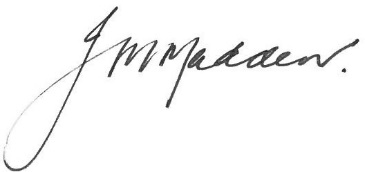 J M Madden.